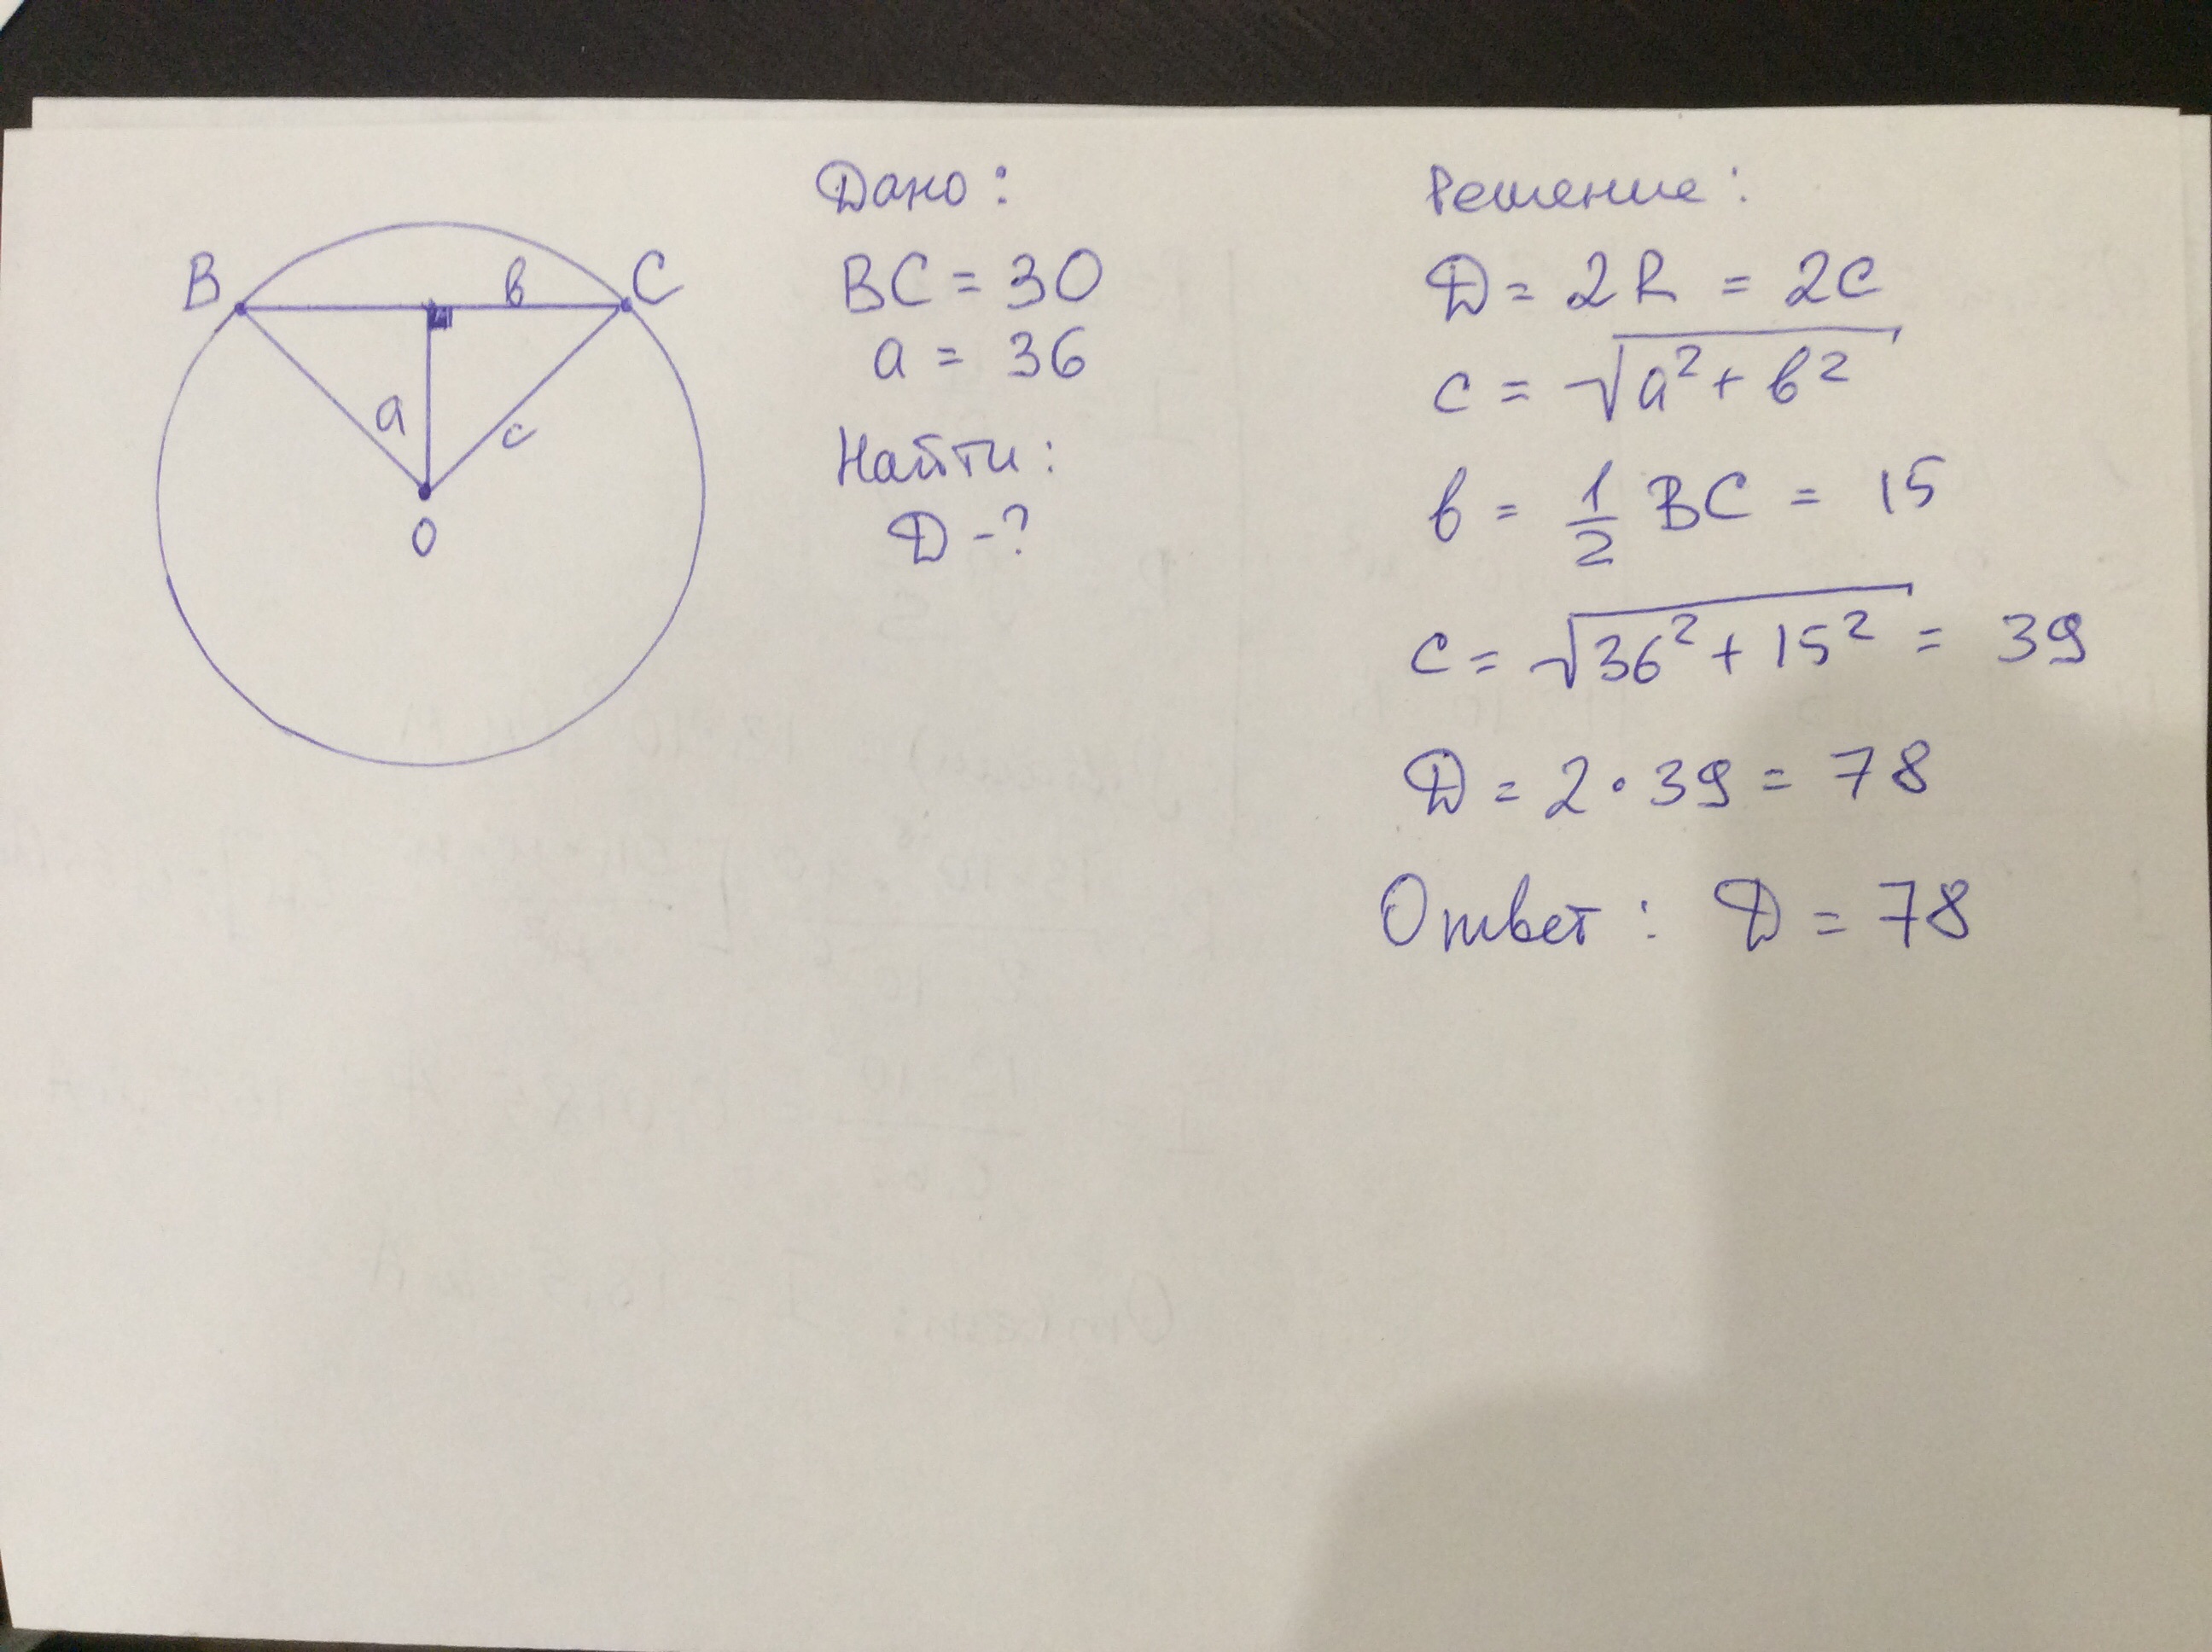 B
в
C
a
c
O
Дано:
BC = 30
a = 36
Найти:
D -?
Решение:
D = 2R = 2c
c = √a² + в²
в = 1/2 BC = 15
c = √36² + 15² = 39
D = 2 · 39 = 78
Ответ: D = 78